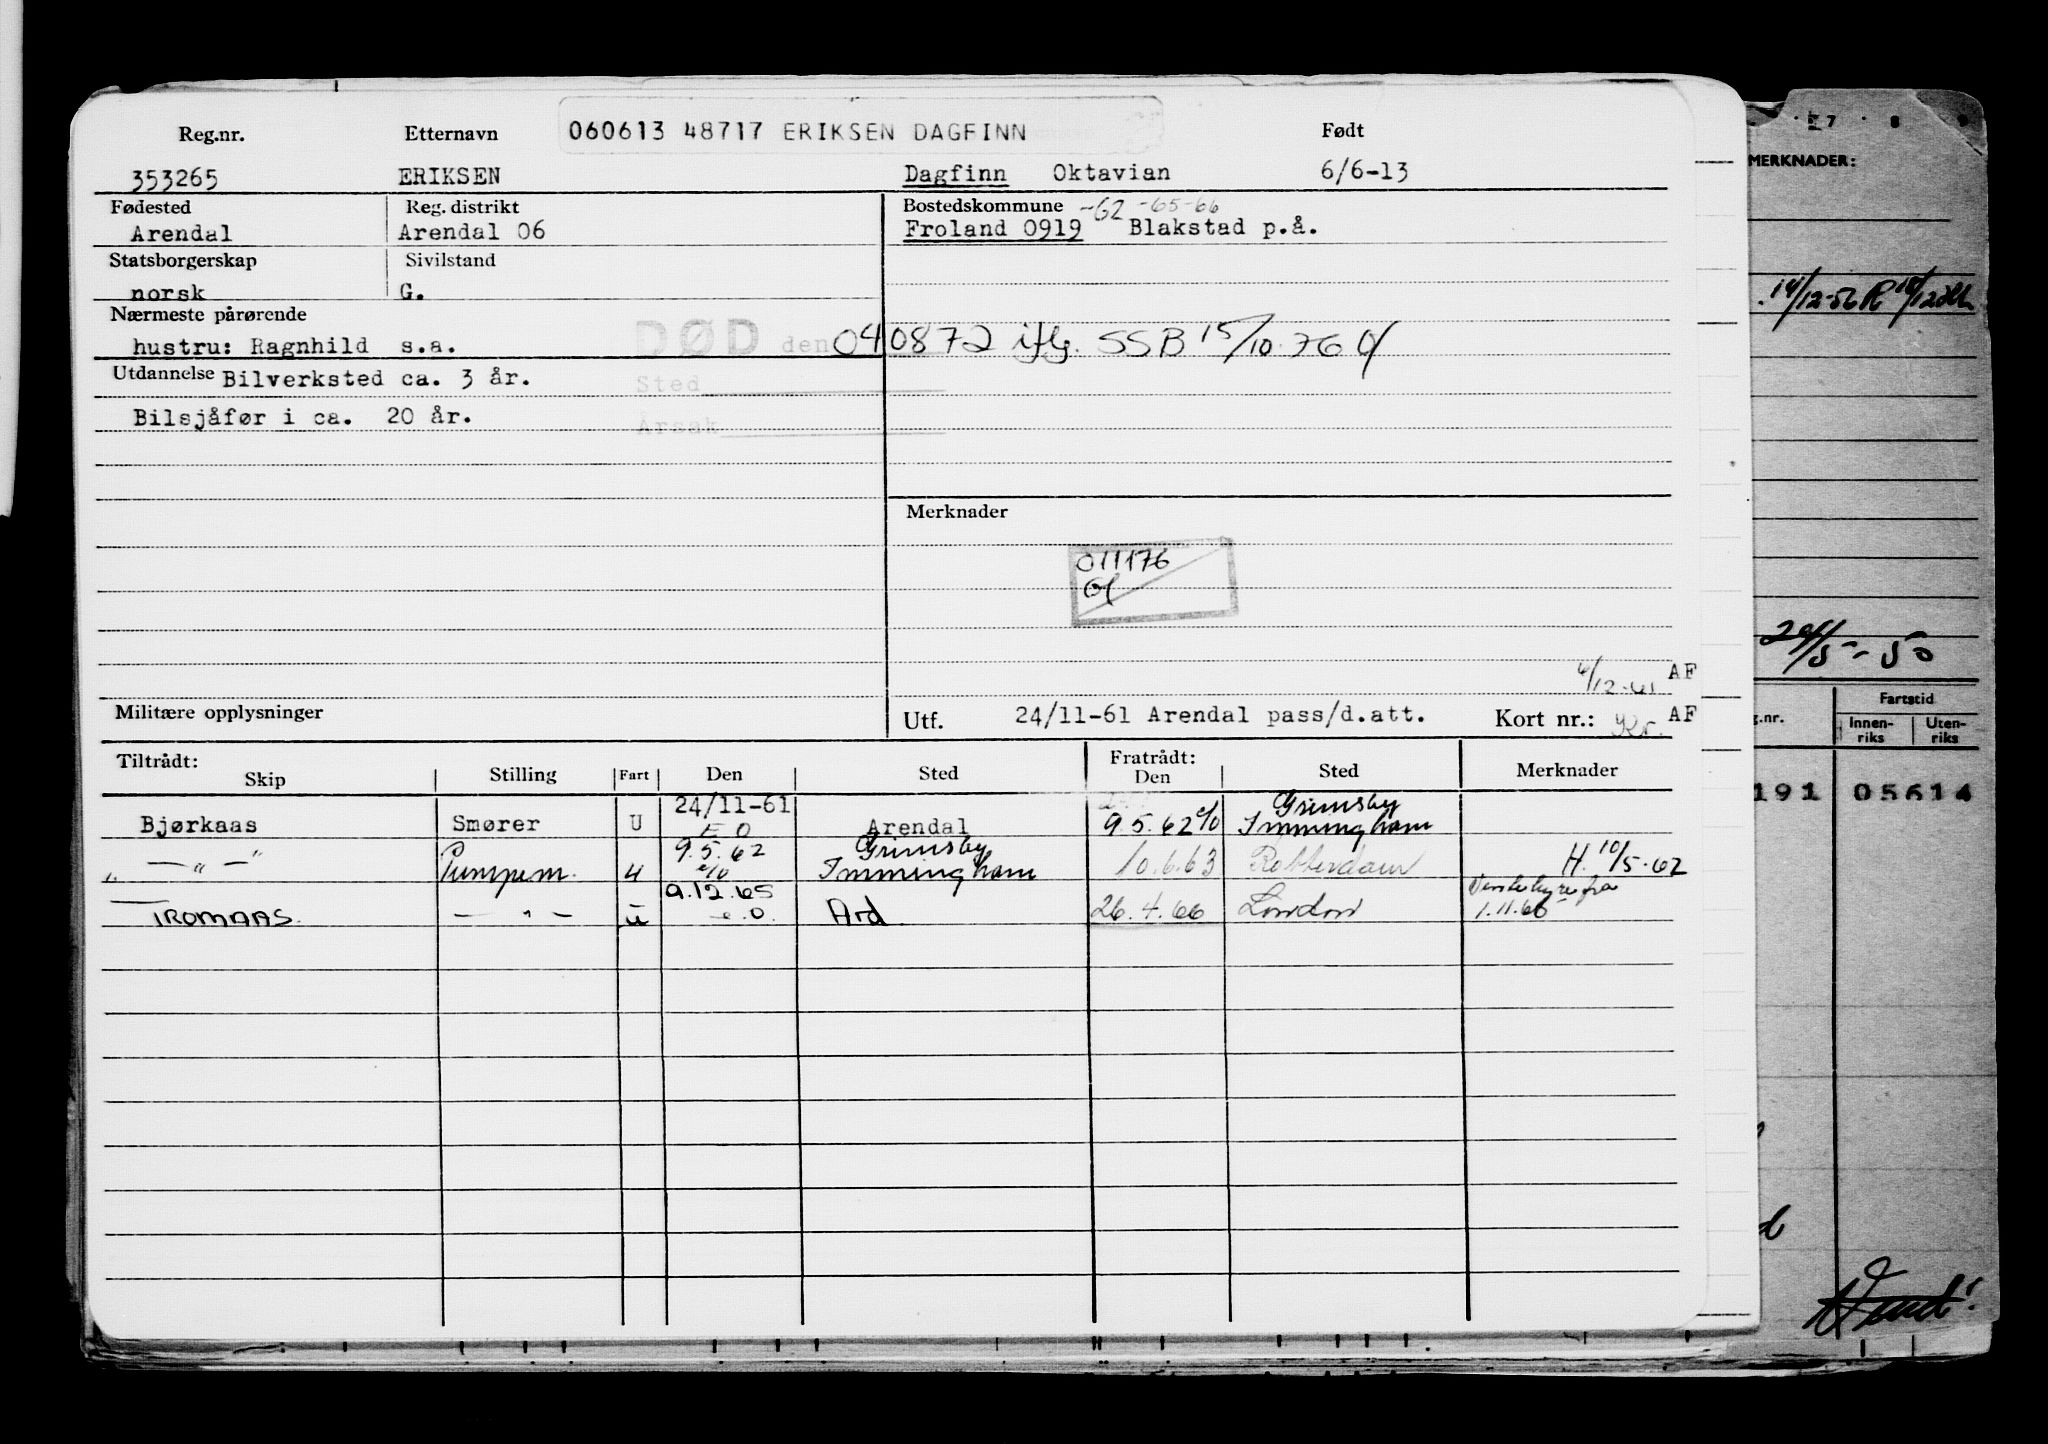 Reg.nr. Etternavn 060613 48717 ERIKSEN DAGFINN Født
353265 ERIKSEN Dagfinn Oktavian 6/6-13
Fødested Reg. distrikt Bostedskommune -62 -65-66
Arendal Arendal 06 Froland 0919 Blakstad p.å.
Statsborgerskap Sivilstand
norsk G.
Nærmeste pårørende
hustru: Ragnhild s.a. DØD den 040872 iflg. SSB 15/10.76
Utdannelse Bilverksted ca. 3 år. Sted
Bilsjåfør i ca. 20 år. Årsak
Merknader
011176
6/12-61 AF
Militære opplysninger Utf. 24/11-61 Arendal pass/d.att. Kort nr.: AF
Tiltrådt: Fratrådt:
Skip Stilling Fart Den Sted Den Sted Merknader
Bjørkaas Smører U 24/11-61 E O Arendal 9.5.62 e/o Grimsby Immingham
" — " — " Pumpem. U 9.5.62 e/o Grimsby Immingham 10.6.63 Rotterdam H. 10/5-62
TROMAAS. — " — U 9.12.65 e.o. Ard 26.4.66 London 1.11.66
7 8 9
MERKNADER:
14/12-56 R
20/5-50
g.nr. Fartstid
Innen-riks Uten-riks
191 05614
Vend!